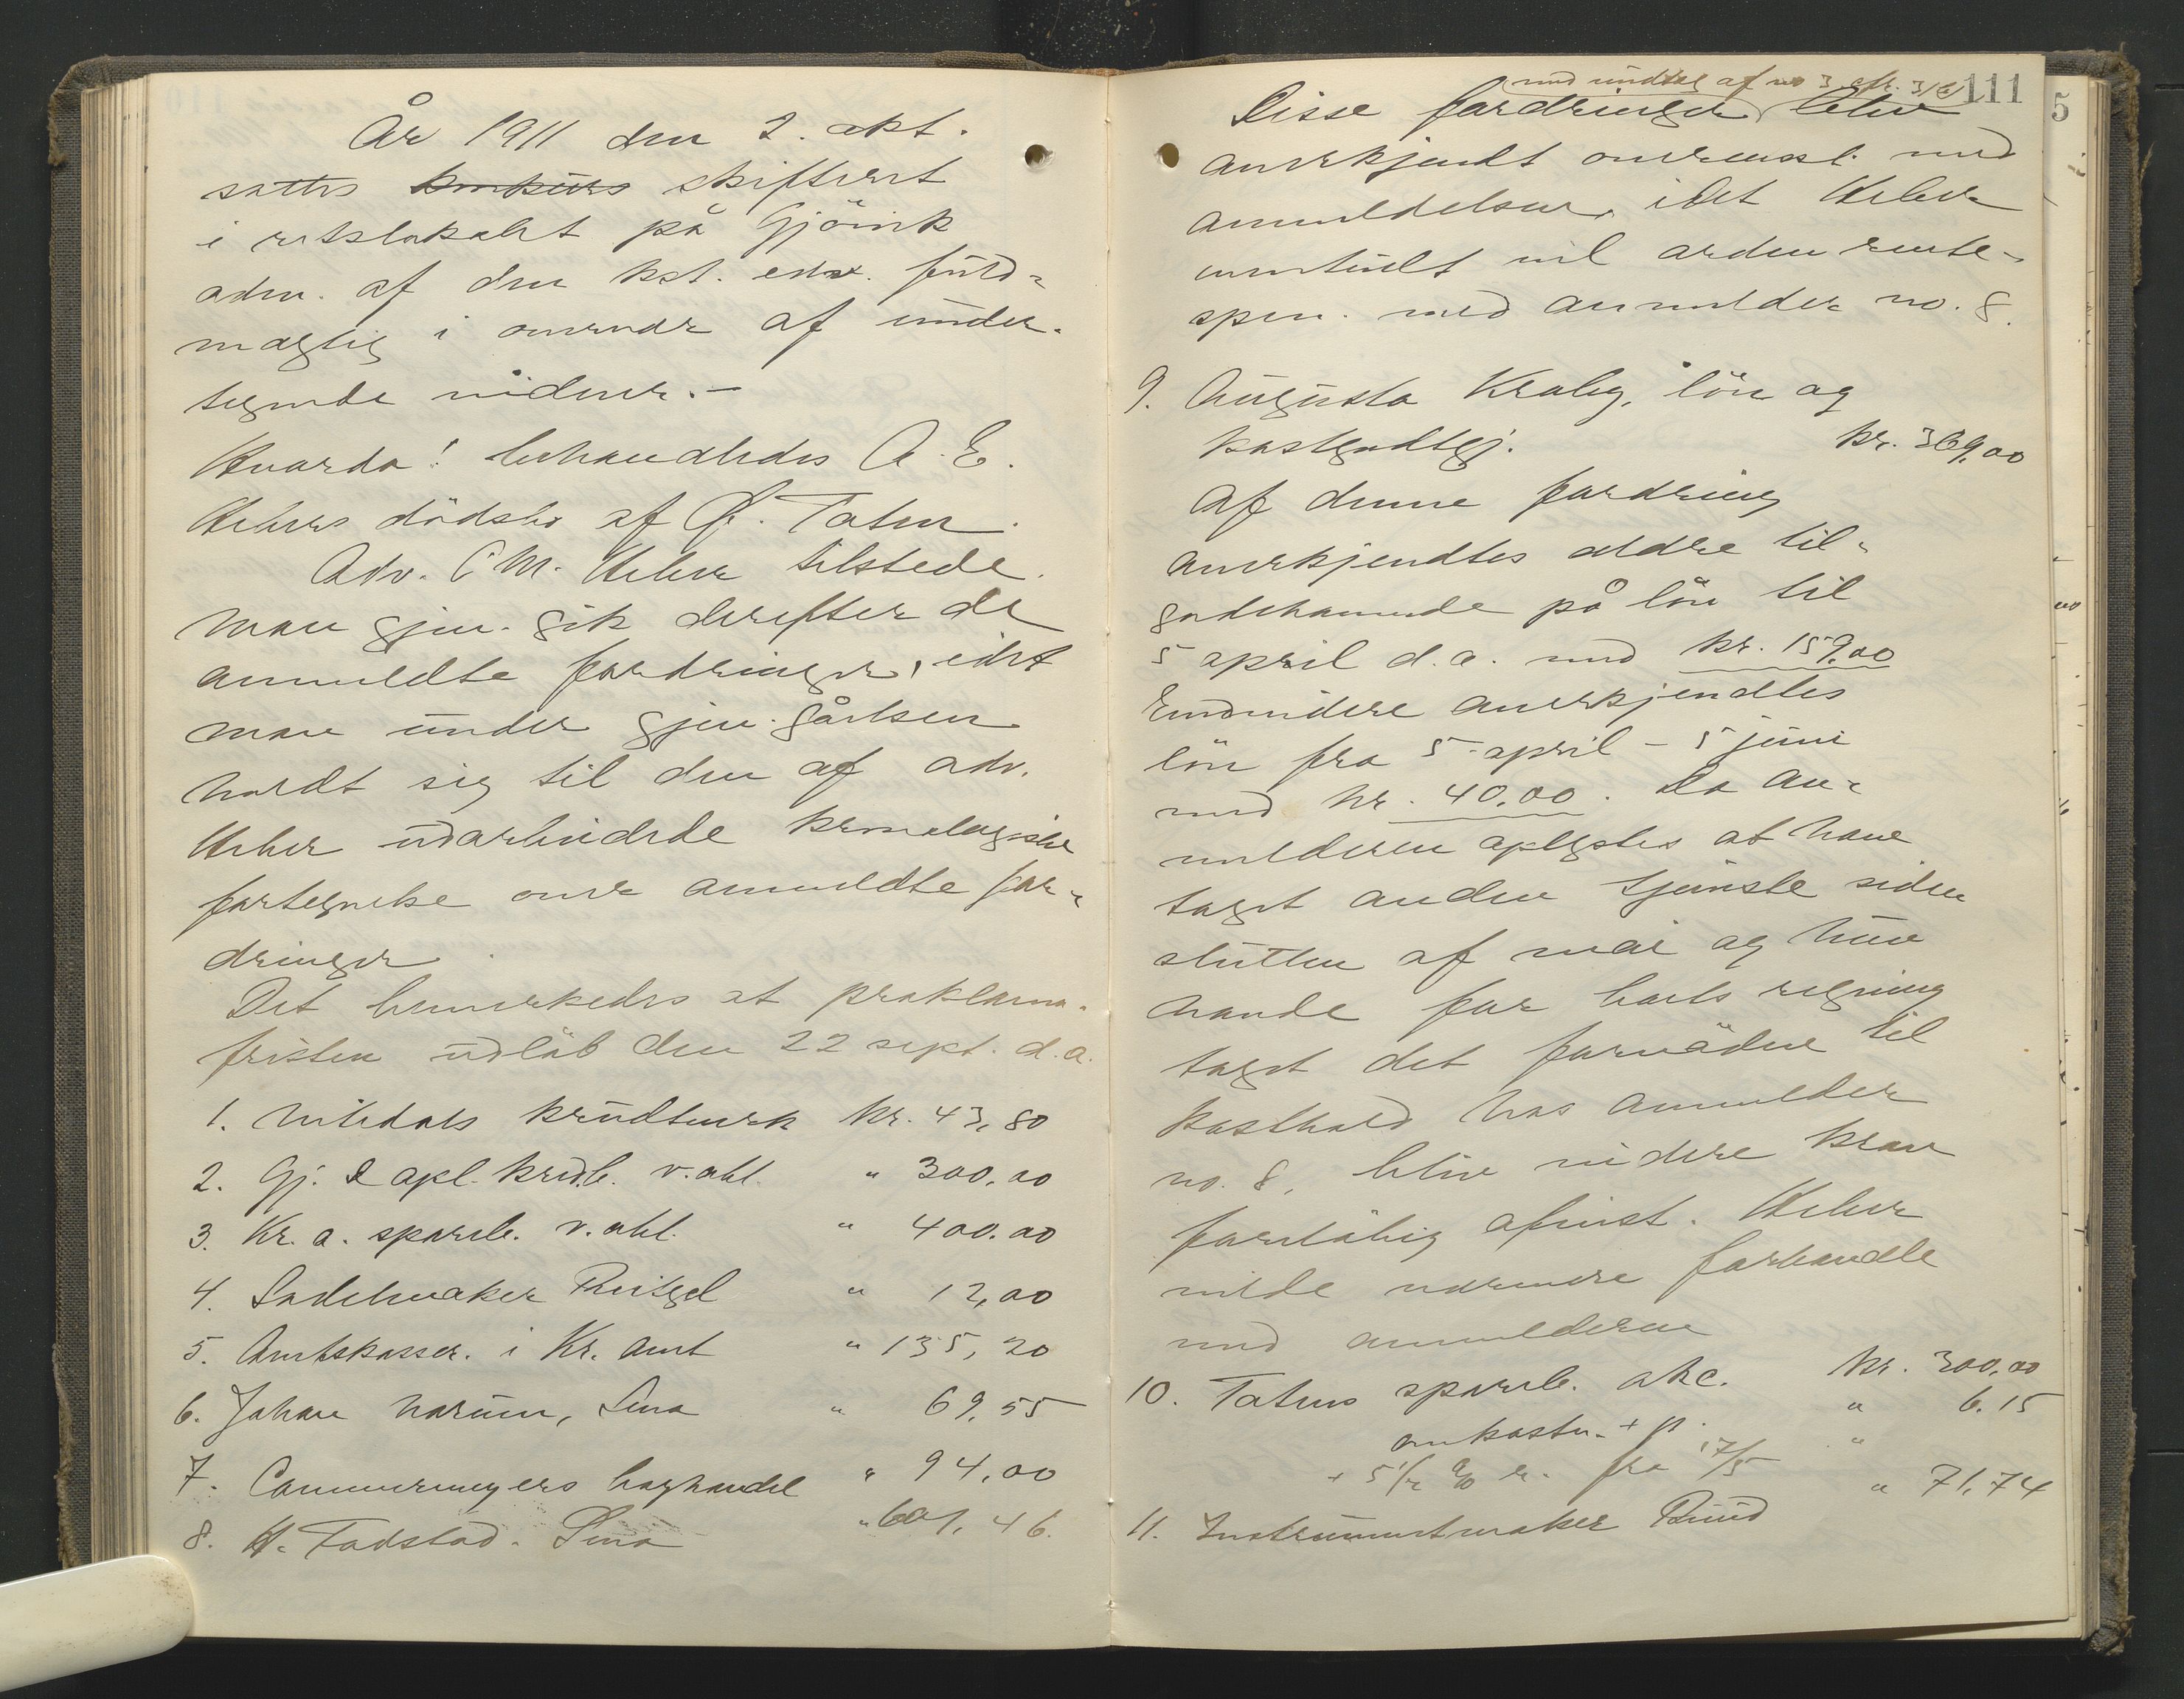 År 1911 den 2. okt.
sattes konkurs skifteret
i retslokalet på Gjövik
adm. af den kst. edsv. fuld-
mægtig i overvær af under-
tegnede vidner.-
Hvorda! behandledes A. E.
Hebers dödsbo af Ö. Toten.
Adv. C M. Heber tilstede.
Man gjen. gik derefter de
anmeldte fordringer, idet
man under gjen. gåelsen
holdt sig til den af adv.
Heber udarbeidede kronologiske
fortegnelse over anmeldte for-
dringer.
Det bemerkedes at proklama-
fristen udlöb den 22 sept. d.a.
1. Nitedals krudtverk kr. 43,80
2. Gj. & opl. kredb. v. obl. " 300,00
3. Kr.a. spareb. v. obl. " 400.00
4. Sadelmaker " 12,00
5. Amtskasser. i Kr. amt " 135,20
6. Johan Narum, Lena " 69,55
7. Cammermeyers boghandel " 94,00
8. H. Fodstad. Lena " 601,46.
111
med undtag af no 3 efr. 3/
Disse fordringer blev
anerkjendt overensst. med
anmeldelsen, idet Heber
eventuelt vil ordne rente-
spm. med anmelder no. 8.
9. Augusta Kraby, lön og
kostgodtgj. kr. 369,00
Af denne fordring
anerkjendtes ældre til-
godehavende på lön til
5 april d.a. med kr. 159,00
Endvidere anerkjendtes
lön fra 5 april - 5 juni
med kr. 40,00. Da an-
melderen oplystes at have
taget anden tjeneste siden
slutten af mai og hun
havde for boets regning
taget det fornödne til
kosthold hos anmelder
no. 8, blev videre krav
forelöbig afvist. Heber
vilde nærmere forhandle
med anmelderen
10. Totens spareb. akc. kr. 300,00
omkostn. + p. " 6.15
+ 5 1/2 % r. fra 17/5 "
11. Instrumentmaker Ruud " 71,74
5